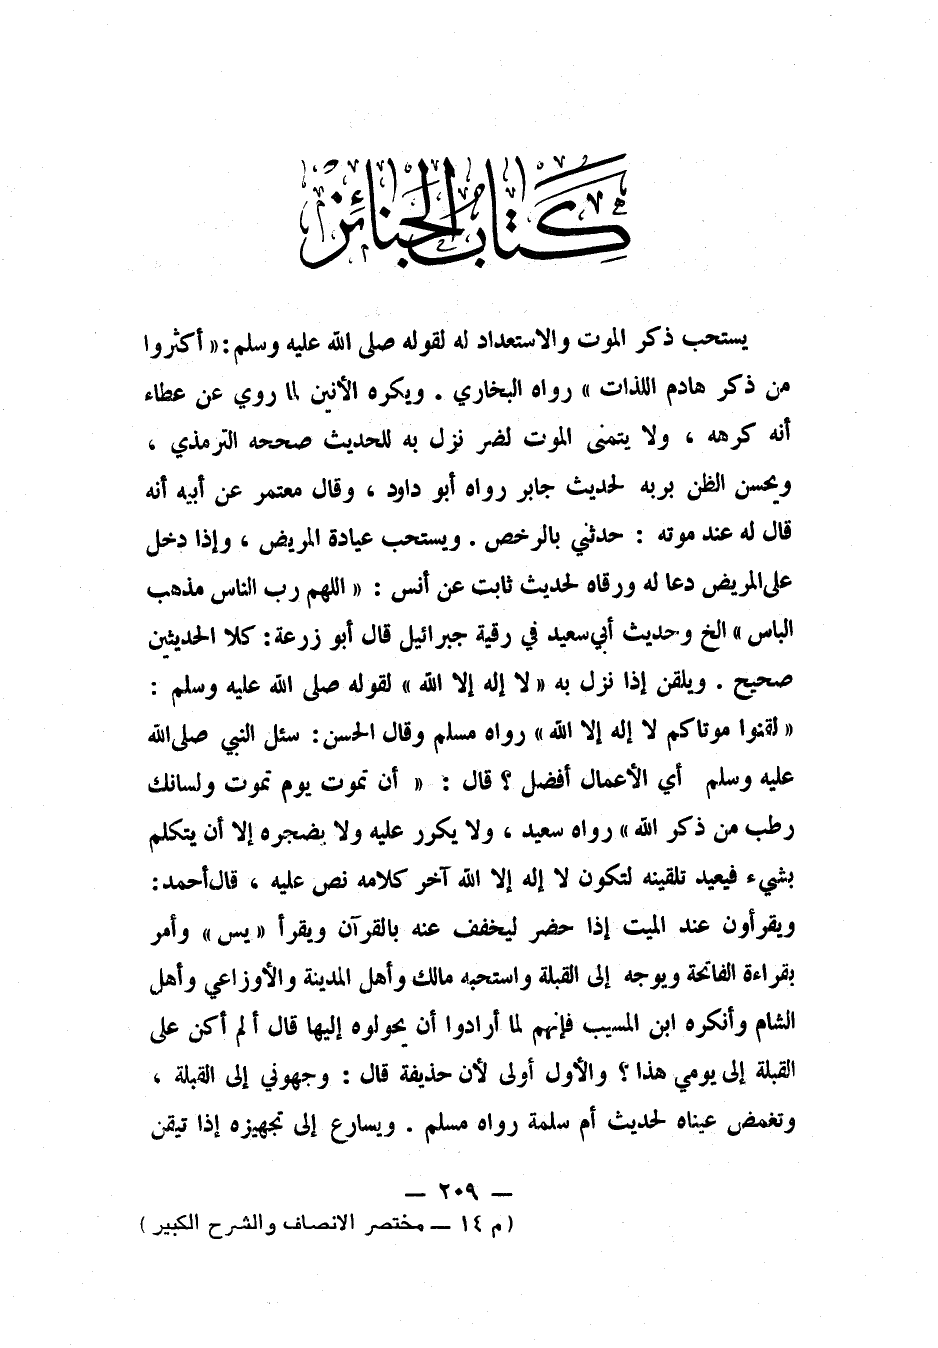 كتاب الجنائز
يستحب ذكر الموت والاستعداد له لقوله صلى الله عليه وسلم : « أكثروا
من ذكر هادم اللذات » رواه البخاري . ويكره الأنين لما روي عن عطاء
أنه كرهه ، ولا يتمنى الموت لضر نزل به للحديث صححه الترمذي ،
ويحسن الظن بربه لحديث جابر رواه أبو داود ، وقال معتمر عن أبيه أنه
قال له عند موته : حدثني بالرخص . ويستحب عيادة المريض ، وإذا دخل
على المريض دعا له ورقاه لحديث ثابت عن أنس : « اللهم رب الناس مذهب
الباس » الخ وحديث أبي سعيد في رقية جبرائيل قال أبو زرعة : كلا الحديثين
صحيح . ويلقن إذا نزل به « لا إله إلا الله » لقوله صلى الله عليه وسلم :
« لقنوا موتاكم لا إله إلا الله » رواه مسلم وقال الحسن : سئل النبي صلى الله
عليه وسلم أي الأعمال أفضل ؟ قال : « أن تموت يوم تموت ولسانك
رطب من ذكر الله » رواه سعيد ، ولا يكرر عليه ولا يضجره إلا أن يتكلم
بشيء فيعيد تلقينه لتكون لا إله إلا الله آخر كلامه نص عليه ، قال أحمد :
ويقرأون عند الميت إذا حضر ليخفف عنه بالقرآن ويقرأ « يس » وأمر
بقراءة الفاتحة ويوجه إلى القبلة واستحبه مالك وأهل المدينة والأوزاعي وأهل
الشام وأنكره ابن المسيب فإنهم لما أرادوا أن يحولوه إليها قال ألم أكن على
القبلة إلى يومي هذا ؟ والأول أولى لأن حذيفة قال : وجهوني إلى القبلة ،
وتغمض عيناه لحديث أم سلمة رواه مسلم . ويسارع إلى تجهيزه إذا تيقن
— ٢٠٩ —
( م ١٤ — مختصر الانصاف والشرح الكبير )